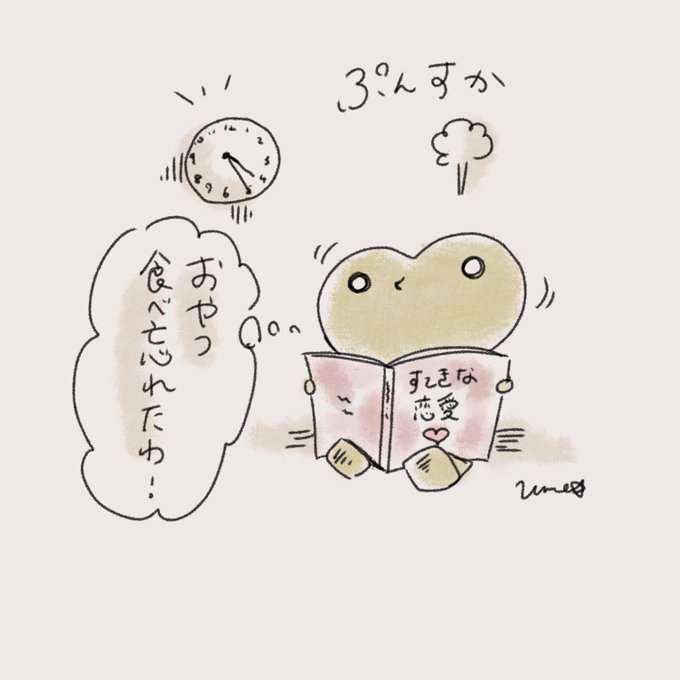 ぷんすか
おやつ
食べ忘れたわ！
すてきな
恋愛